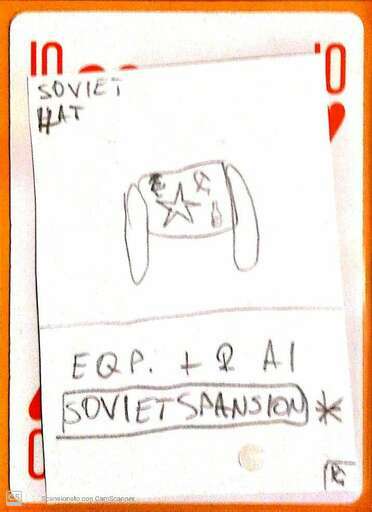 10
10
SOVIET
HAT
EQP. + 2 AI
SOVIETSPANSION *
R
CS Scansionato con CamScanner